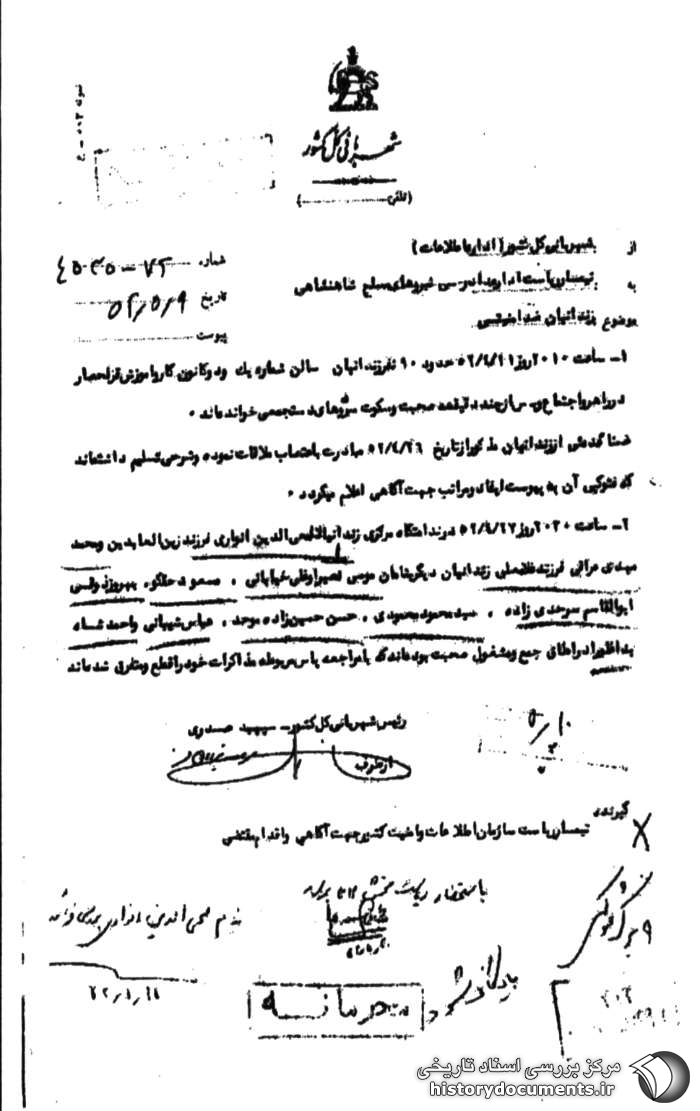 شهربانی کل کشور
(تلفن ........)
از شهربانی کل کشور (اداره اطلاعات)
شماره ۷۲ - ۴۵۰۳۵
به تیمسار ریاست اداره دادرسی نیروهای مسلح شاهنشاهی
تاریخ ۵۲/۵/۹
موضوع زندانیان ضد امنیتی
پیوست
۱- ساعت ۲۰۱۰ روز ۵۲/۴/۲۱ حدود ۹۰ نفر زندانیان سالن شماره یک و دو کانون کارآموزش قزلحصار
در راهرو اجتماع و پس از چند دقیقه صحبت و سکوت سرودهای دستجمعی خوانده‌اند .
ضمنا عده‌ئی از زندانیان مذکور از تاریخ ۵۲/۴/۲۶ مبادرت باعتصاب ملاقات نموده و شرحی تسلیم داشته‌اند
که فتوکپی آن به پیوست ایفاد و مراتب جهت آگاهی اعلام میگردد .
۲- ساعت ۲۰۳۰ روز ۵۲/۴/۲۷ در ندامتگاه مرکزی زندانیان محی الدین انواری فرزند زین العابدین و محمد
مهدی عراقی فرزند غلامعلی زندانیان دیگر بنامان موسی نصیر اوغلی خیابانی . مسعود حقگو . بهروز ذوفنی
ابوالقاسم سرحدی زاده . سید محمود محمودی . حسن حسین زاده موحد . عباس شیبانی و احمد شاه
بداظو در اطاق جمع و مشغول صحبت بوده‌اند که با مراجعه پاس مربوطه مذاکرات خود را قطع و متفرق شده‌اند
رئیس شهربانی کل کشور - سپهبد صدری
از طرف
۵/۱۰
گیرنده
تیمسار ریاست سازمان اطلاعات و امنیت کشور جهت آگاهی و اقدام مقتضی
باستحضار ریاست بخش ۳۱۲ برسد
محی الدین انواری
بایگانی شود
محرمانه
مرکز بررسی اسناد تاریخی
historydocuments.ir